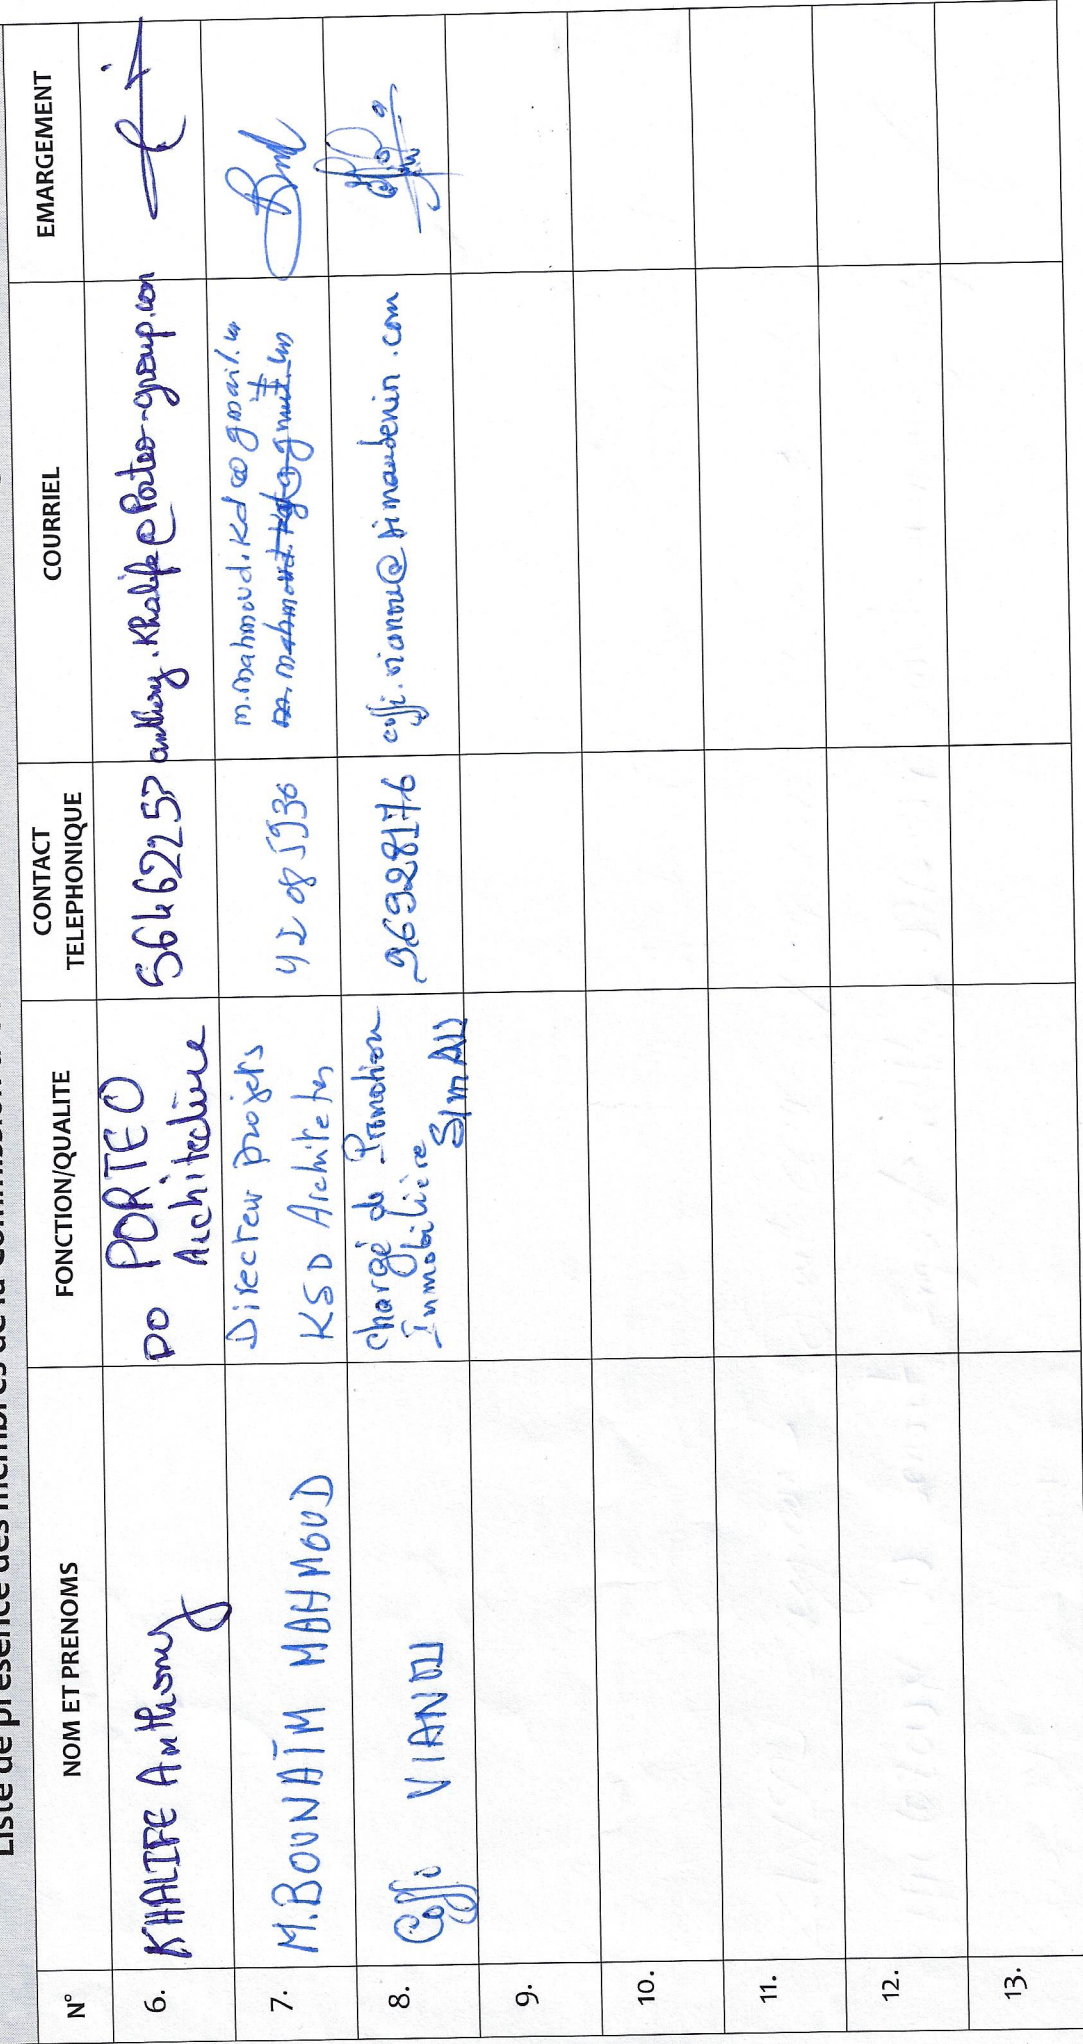 Liste de présence des membres de la Commission
N° NOM ET PRENOMS FONCTION/QUALITE CONTACT TELEPHONIQUE COURRIEL EMARGEMENT
6. KHALIFE Anthony DO PORTEO Architecture 56462257 anthony.Khalife@Porteo-group.com
7. M.BOUNAÏM MAHMOUD Directeur projets KSD Architectes 42085936 m.mahmoud.kd@gmail.com
8. Coffi VIANOU chargé de Promotion Immobilière SImAU 96928176 coffi.vianou@simaubenin.com
9.
10.
11.
12.
13.